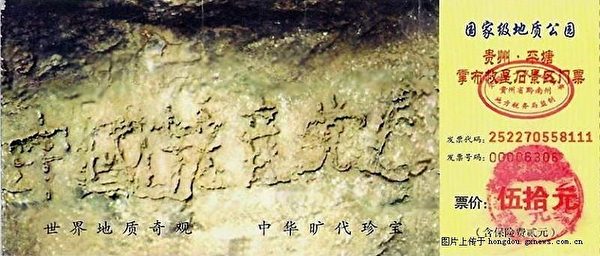 中國共產党亡
世界地质奇观 中华旷代珍宝
国家级地质公园
贵州·平塘
掌布救星石景区门票
贵州省黔南州
地方税务局监制
发票代码:252270558111
发票号码:00006306
票价:伍拾元
(含保险费贰元)
图片上传于 hongdou.gxnews.com.cn